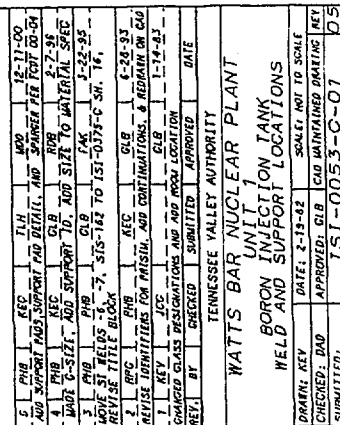 5 PHB KEC TLH MOO 12-11-00
ADD SUPPORT PADS, SUPPORT PAD DETAIL, AND SPARGER PER FCDT 00-04
4 PHB KEC GLB RDB 2-7-96
MADE C-SIZE, ADD SUPPORT ID, ADD SIZE TO MATERIAL SPEC
3 PHB PHB GLB FAK 3-22-95
MOVE SI WELDS -6, -7, SIS-162 TO ISI-0373-C SH. 16,
REVISE TITLE BLOCK
2 BPC PHB KEC GLB 6-24-93
REVISE IDENTIFIERS FOR PMISIM, ADD CONTINUATIONS, & REDRAWN ON CAD
1 KEV JCC GLB 1-14-83
CHANGED CLASS DESIGNATIONS AND ADD ROOM LOCATION
REV. BY CHECKED SUBMITTED APPROVED DATE
TENNESSEE VALLEY AUTHORITY
WATTS BAR NUCLEAR PLANT
UNIT 1
BORON INJECTION TANK
WELD AND SUPPORT LOCATIONS
DRAWN: KEV DATE: 2-19-82 SCALE: NOT TO SCALE
CHECKED: DAD APPROVED: GLB CAD MAINTAINED DRAWING REV
SUBMITTED: ISI-0053-C-01 05